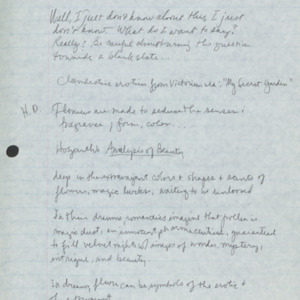 Well, I just don't know about this. I just
don't know. What do I want to say?
Really? Be careful about
towards a blank slate.
Clandestine erotica from Victorian era: "My Secret Garden"
H.D. Flowers are made to seduce the senses:
fragrance, form, color...
Hogarth's Analysis of Beauty
deep in the extravagant colors & shapes & scents of
flowers, magic lurks, waiting to be
In their dreams romantics imagine that pollen is
magic dust, an pharmaceutical, guaranteed
to fill velvet nights w/ images of wonder, mystery,
intrigue, and beauty.
In dreams, flowers can be symbols of the erotic &